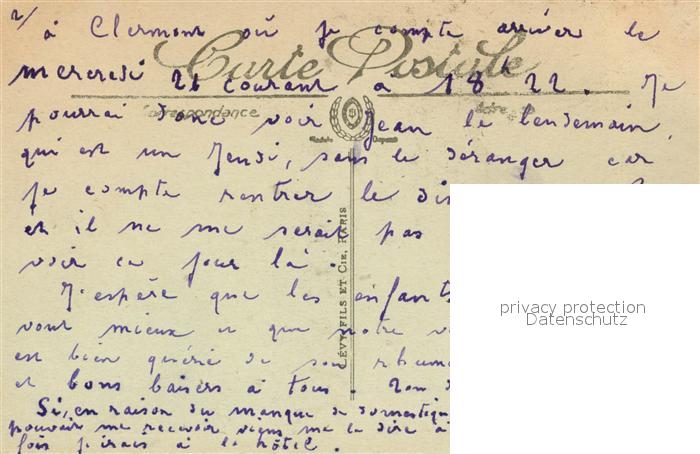 2/
à Clermont où je compte arriver le
Carte Postale
mercredi 21 courant à 18h22. Je
Correspondance
Adresse
pourrai donc voir Jean le lendemain,
qui est un Jeudi, sans le déranger car
je compte rentrer le
et il ne me serait pas
voir ce jour là.
J'espère que les enfants
vont mieux et que notre
est bien guérie de son rhume
et bons baisers à tous.
Si, en raison du manque de domestiqu
pouvais me recevoir viens me le dire à
fois j'irais à l'hôtel.
LÉVY FILS ET CIE, PARIS
privacy protection
Datenschutz